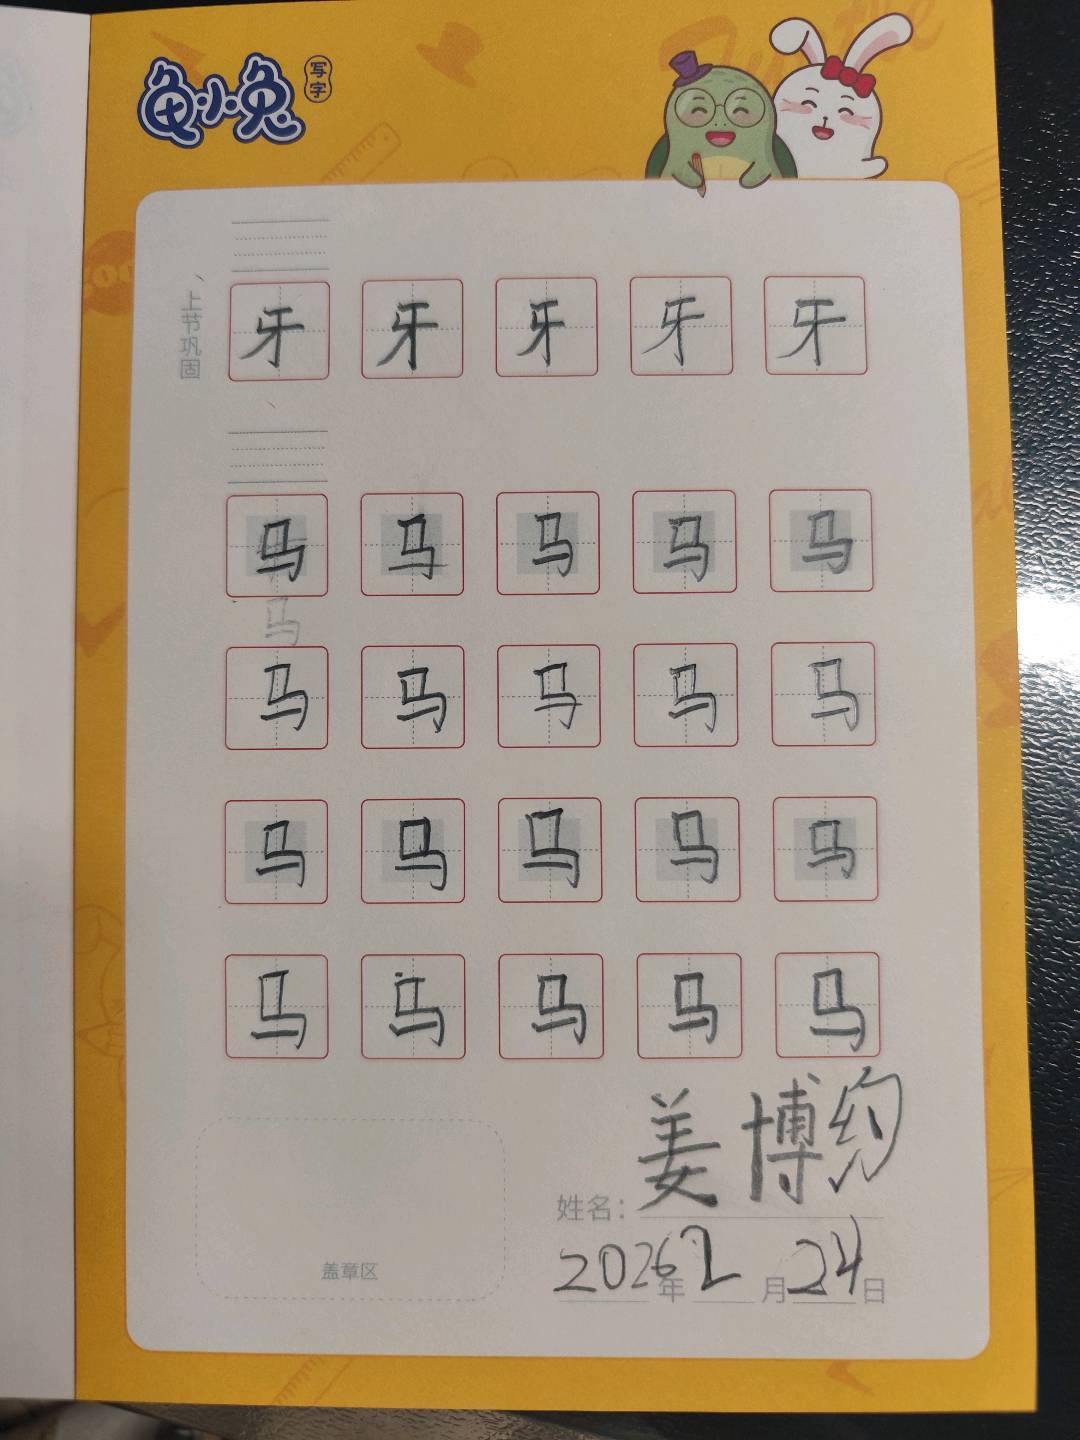 龟小兔
写字
上节巩固
牙 牙 牙 牙 牙
马 马 马 马 马
马
马 马 马 马 马
马 马 马 马 马
马 马 马 马 马
姓名：姜博约
2026年2月24日
盖章区